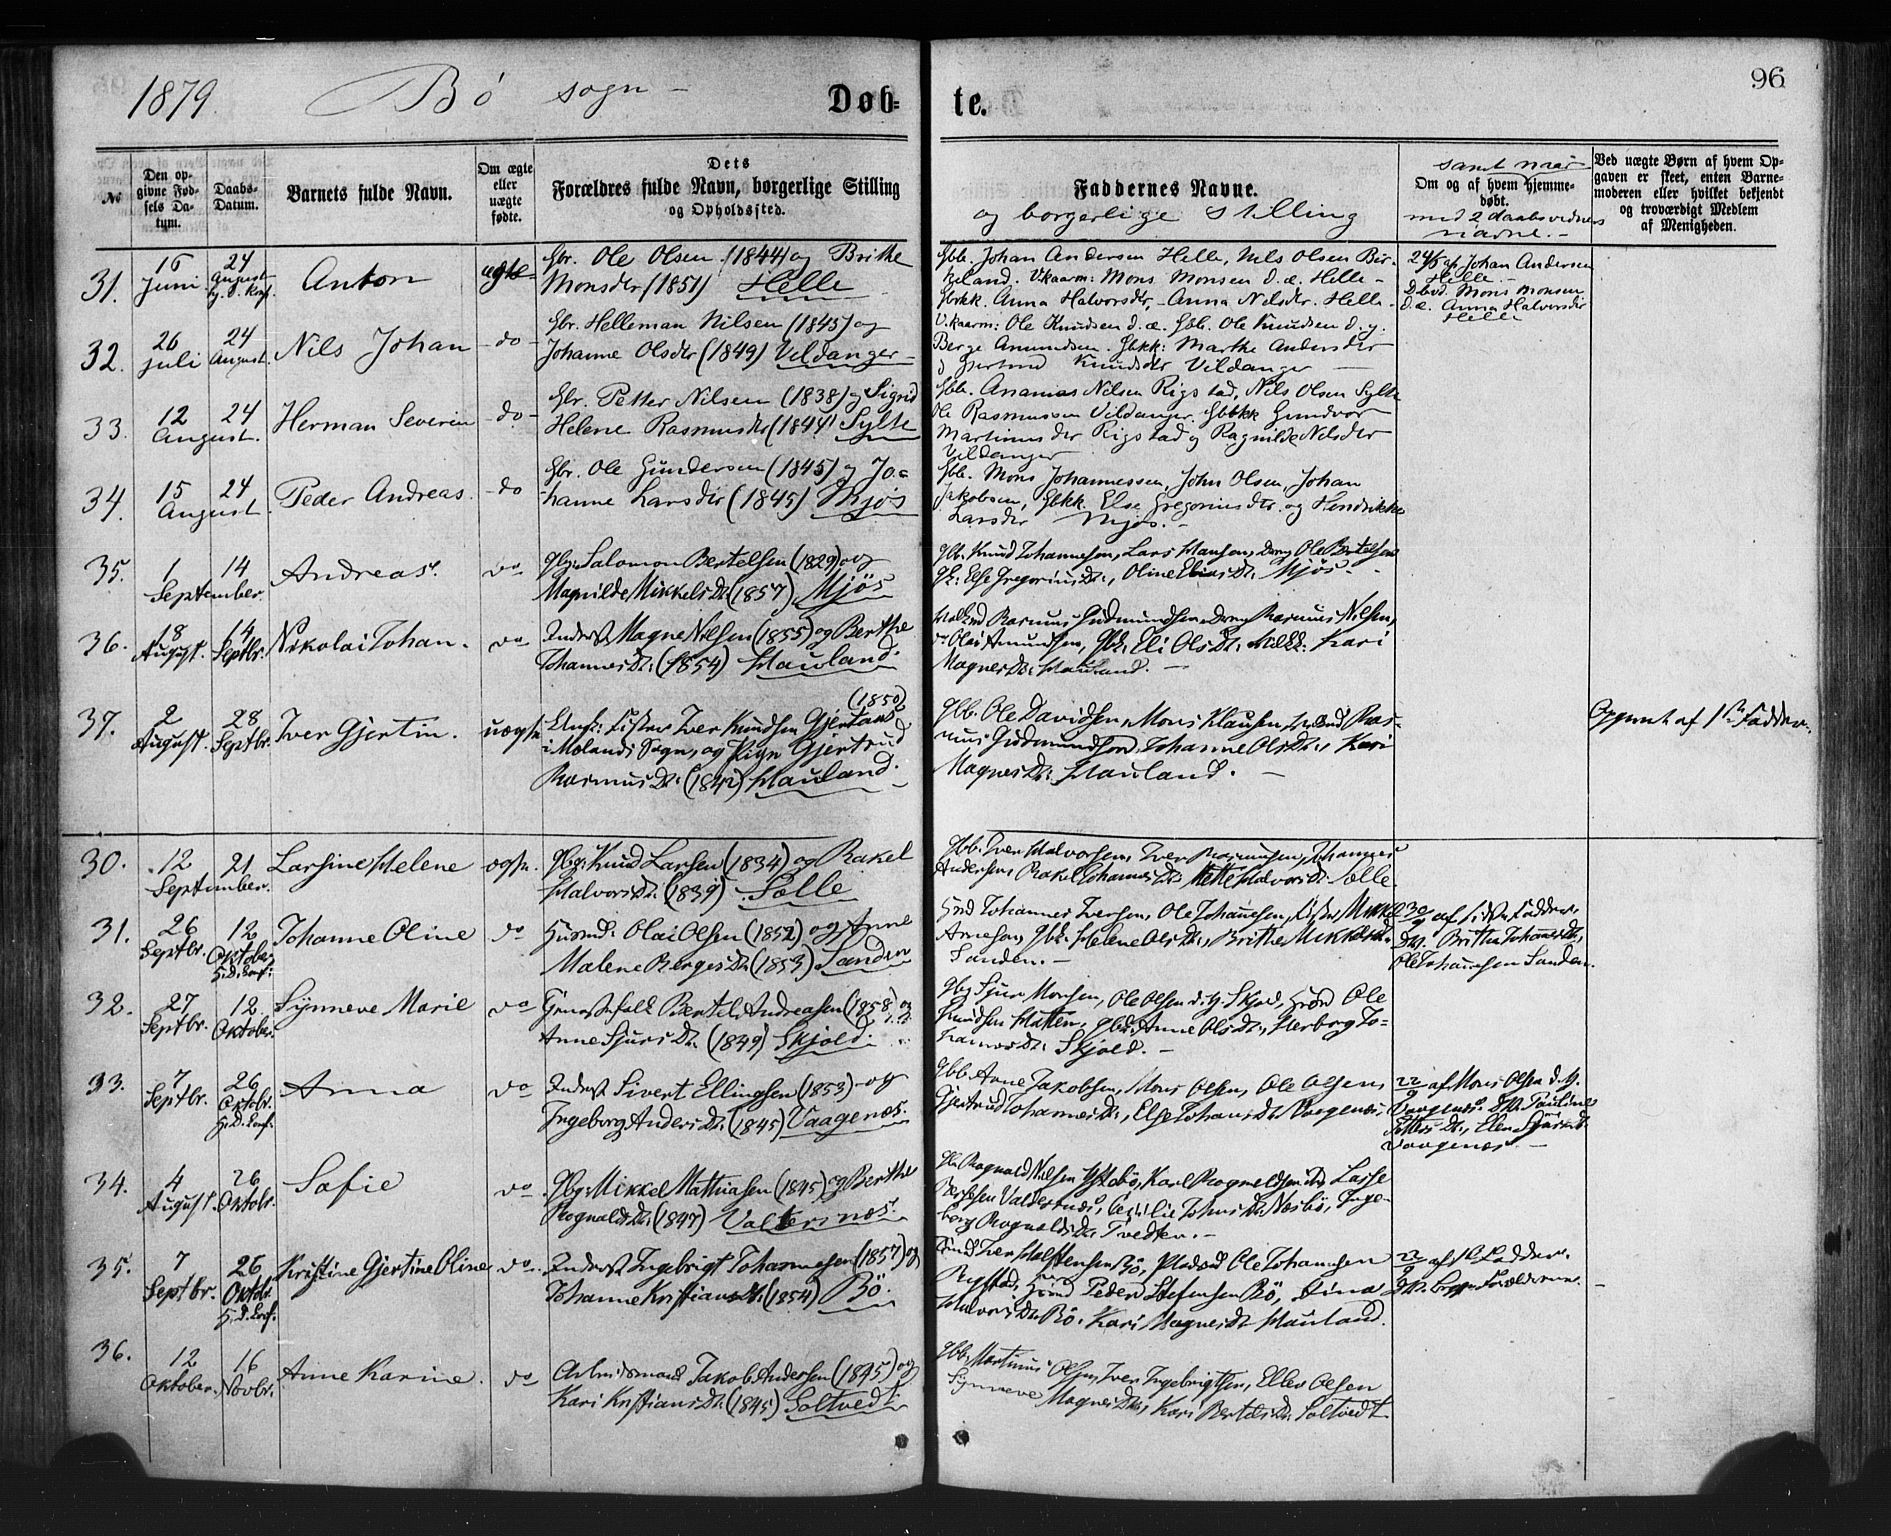 1879. Bö sogn – Døb- te. 96
№
Den op-
givne Fød-
sels Da-
tum.
Daabs-
Datum.
Barnets fulde Navn.
Om ægte
eller
uægte
fødte.
Dets
Forældres fulde Navn, borgerlige Stilling
og Opholdssted.
Faddernes Navne.
og borgerlige Stilling
samt naar
Om og af hvem hjemme-
døbt.
med 2 daabsvidners
navne. –
Ved uægte Børn af hvem Op-
gaven er skeet, enten Barne-
moderen eller hvilket bekjendt
og troværdigt Medlem
af Menigheden.
31. 16 Juni 24 August Anton ægte
Gbr. Ole Olsen (1844) og Brithe
Monsdtr (1851) Helle
Gbb. Johan Andersen Helle, Nils Olsen Bir-
keland. V.kaarm: Mons Monsen d. æ. Helle –
Gbkk. Anna Halvorsdtr – Anna Nilsdtr. Helle –
24/6 af Johan Andersen
Helle –
Mons Monsen
d. æ. Anna Halvorsdtr
Helle
32. 26 juli 24 August. Nils Johan – do –
Gbr. Helleman Nilsen (1845) og
Johanne Olsdtr (1849) Vildanger –
V.kaarm: Ole Knudsen d. æ. Gbb. Ole Knudsen d. y.
Berge Amundsen. Gbkk: Marthe Andersdtr
og Gjertrud Knudsdtr Vildanger –
33. 12 August 24 August. Herman Severin – do –
Gbr. Petter Nilsen (1838) og Sigrid
Helene Rasmusdtr (1844) Sylte
Gbb. Ananias Nilsen Rigstad, Nils Olsen Sylte
Ole Rasmussen Vildanger. Gbkk Gundvor
Martinusdtr Rigstad og Ragnilde Nilsdtr
Vildanger
34. 15 August 24 August. Peder Andreas. – do –
Gbr. Ole Gundersen (1845) og Jo-
hanne Larsdtr (1845) Mjøs
Gbb. Mons Johannessen, John Olsen, Johan
Jakobsen, Gbkk. Else Gregoriusdtr. og Hendrikke
Larsdtr Mjøs. –
35. 1 September 14 September. Andreas. do
Gbg: Salomon Bertelsen (1829) og
Magnilde Mikkels Dt: (1857) Mjøs
Gbb. Knud Johannesen, Lars Hansen, Drng Ole Bertelsen
Gk: Else Gregorius Dt:, Oline Elias Dt: Mjøs. –
36. 18 August. 14 Septbr. Nikolai Johan. do
Inderst Magne Nilsen (1855) og Berthe
Johannes Dt: (1854) Hauland.
Rasmus Gudmundsen, Drng Rasmus Nilsen,
do Olai Amundsen, Gbk: Eli Ols Dt: Kari
Magnes Dt: Hauland. –
37. 2 August. 28 Septbr. Iver Gjertin. uægte
Ungk: Fisker Iver Knudsen Gjertnes (1850)
i Mølands Sogn, og Pige Gjertrud
Rasmus Dt: (1842) Hauland.
Gbb. Ole Davidsen, Mons Klausen, Ras-
mus Gudmundsen, Johanne Ols Dt:, Kari
Magnes Dt: Hauland. –
Opgivet af 1ste Fadder.
30. 12 September 21 September. Larsine Helene ægte.
Gbg: Knud Larsen (1834) og Rakel
Halvors Dt: (1839) Sælle
Gbb. Iver Halvorsen, Iver Rasmusen, Johannes
Andersen, Rakel Johannes Dt: Mette Halvors Dt: Sælle.
31. 26 Septbr. 12 Oktober H.D. Conf: Johanne Oline do
Husmd: Olai Olsen (1852) og Anne
Malene Berges Dt: (1853) Sanden
Husmd Johannes Iversen, Ole Johannesen, Mikkel
Arnesen, Gbk: Helene Ols Dt:, Brithe Mikkels Dt:
Sanden. –
30/9 af sidste Fadder.
Brithe Johannes Dt:,
Ole Johannesen Sanden.
32. 27 Septbr. 12 Oktober. Synneve Marie do
Bertel Andreasen (1858) og
Anne Sjurs Dt: (1849) Skjold.
Gbg Sjur Monsen, Ole Olsen d. y. Skjold, Husmd Ole
Knudsen, Gbk: Anne Ols Dt:, Herborg Jo-
hannes Dt: Skjold. –
33. 7 Septbr. 26 Oktbr. H.D. Conf: Anna do
Inderst Sivert Ellingsen (1853) og
Ingeborg Anders Dt: (1845) Vaagenæs.
Gbb. Arne Jakobsen, Mons Olsen, Ole Olsen,
Gjertrud Johannes Dt:, Else Johans Dt: Vaagenæs.
22/9 af Mons Olsen d. y.
Vaagenæs. Pauline
Petters Dt:, Elen
Vaagenæs. –
34. 4 August. 26 Oktobr. Sofie do
Gbg: Mikkel Mathiasen (1845) og Berthe
Rognalds Dt: (1847) Valdersnæs.
Rognald Nilsen Ystebø, Karl Rognaldsen, Lasse
Valdersnæs, Cecilie Johns Dt: Næsbø, Inge-
borg Rognalds Dt: Tvedten. –
35. 7 Septbr. 26 Oktbr. H.D. Conf. Kristine Gjertine Oline do
Inderst Ingebrigt Johannesen (1857) og
Johanne Kristians Dt: (1854) Bö.
Iver Halstensen Bö, Pladsmd Ole Johannesen
Rygstad, Husmd Peder Stefensen Bö, Stina
Halvors Dt: Bö. Kari Magnes Dt: Hauland.
22/9 af 1ste Fadder.
Begge Forældrene.
36. 12 Oktober. 16 Novbr. Anne Karine. do
Arbeidsmand Jakob Andersen (1845) og
Kari Kristians Dt: (1845) Soltvedt
Gbb. Martinus Olsen, Iver Ingebrigtsen, Ellev Olsen
Synneve Magnes Dt:, Kari Bertels Dt: Soltvedt